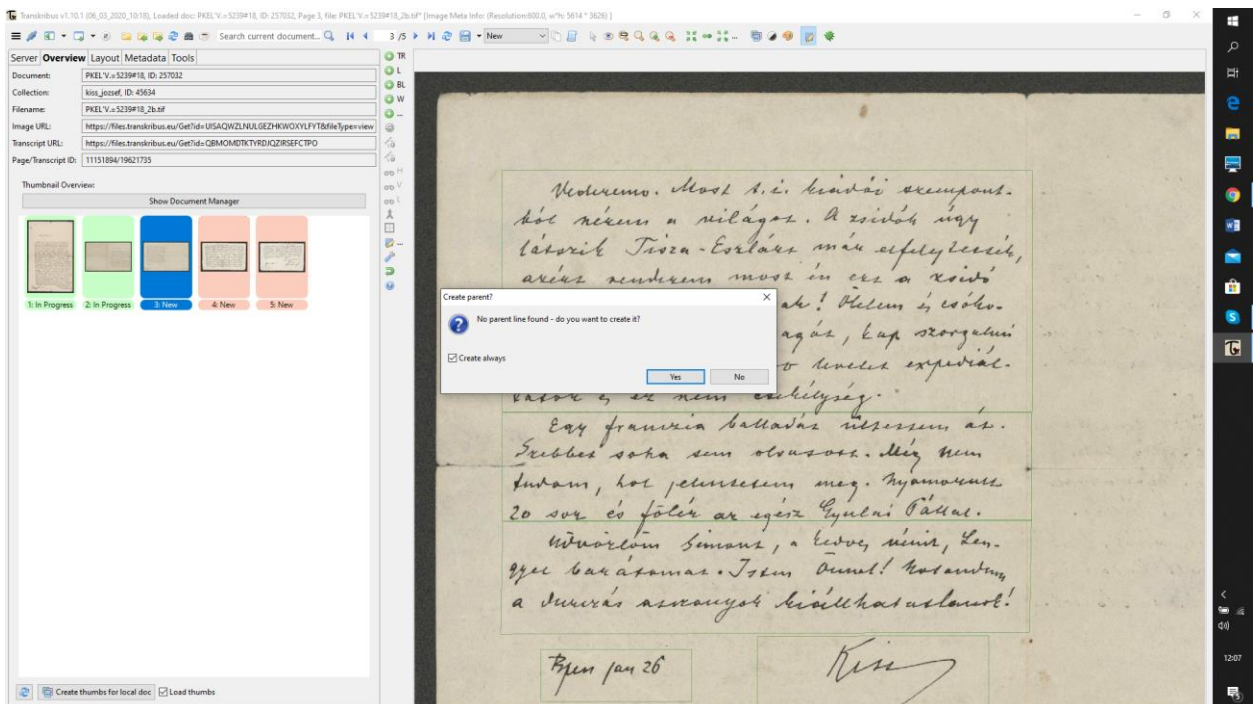 Transkribus v1.10.1 (06_03_2020_10:18), Loaded doc: PKEL'V.=5239#18, ID: 257032, Page 3, file: PKEL'V.=5239#18_2b.tif* [Image Meta Info: (Resolution:600.0, w*h: 5614 * 3626) ]
Search current document...
3 /5
New
Server Overview Layout Metadata Tools
Document: PKEL'V.=5239#18, ID: 257032
Collection: kiss_jozsef, ID: 45634
Filename: PKEL'V.=5239#18_2b.tif
Image URL: https://files.transkribus.eu/Get?id=UISAQWZLNULGEZHKWOXYLFYT&fileType=view
Transcript URL: https://files.transkribus.eu/Get?id=QBMOMDTKTYRDJQZIRSEFCTPO
Page/Transcript ID: 11151894/19621735
Thumbnail Overview:
Show Document Manager
1: In Progress
2: In Progress
3: New
4: New
5: New
Create thumbs for local doc
Load thumbs
TR
L
BL
W
...
H
V
L
Create parent?
No parent line found - do you want to create it?
Create always
Yes
No
Vederemo. Most t.i. kiadói szempont-
ból nézem a világot. A zsidók úgy
látszik Tisza-Eszlárt már elfelejtették,
azért rendezem most én ezt a zsidó
ak! Ölelem és csóko-
kap szorgalmi
levelet expediál-
ez nem csekélység.
Egy franczia balladát ültettem át.
Szebbet soha sem olvasott. Még nem
tudom, hol jelentetem meg. Nyomorult
20 sor és fölér az egész Gyulai Pállal.
Üdvözlöm Simont, a kedves nénit, Len-
gyel barátomat. Isten Önnel!
a asszonyok kiállhatatlanok!
Bpen jan 26
Kiss
12:07